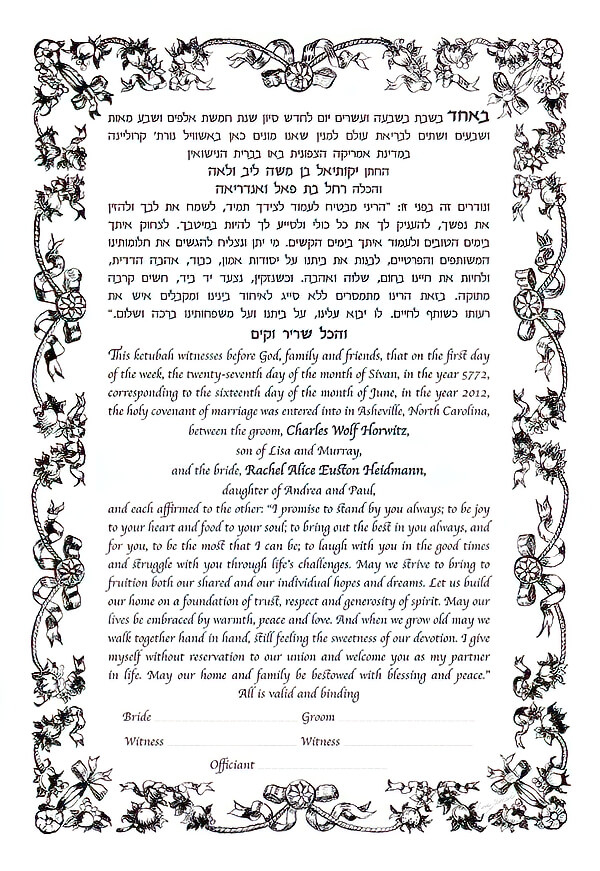 באחד בשבת בשבעה ועשרים יום לחדש סיון שנת חמשת אלפים ושבע מאות
ושבעים ושתים לבריאת עולם למנין שאנו מונים כאן באשוויל נורת' קרוליינה
במדינת אמריקה הצפונית באו בברית הנישואין
החתן יקותיאל בן משה ליב ולאה
והכלה רחל בת פאל ואנדריאה
ונודרים זה בפני זו: "הריני מבטיח לעמוד לצידך תמיד, לשמח את לבך ולהזין
את נפשך, להעניק לך את כל כולי ולסייע לך להיות במיטבך. לצחוק איתך
בימים הטובים ולעמוד איתך בימים הקשים. מי יתן ונצליח להגשים את חלומותינו
המשותפים והפרטיים, לבנות את ביתנו על יסודות אמון, כבוד, אהבה הדדית,
ולחיות את חיינו בחום, שלוה ואהבה. וכשנזקין, נצעד יד ביד, חשים קרבה
מתוקה. בזאת הרינו מתמסרים ללא סייג לאיחוד בינינו ומקבלים איש את
רעותו כשותף לחיים. לו יבוא עלינו, על ביתנו ועל משפחותינו ברכה ושלום."
והכל שריר וקים
This ketubah witnesses before God, family and friends, that on the first day
of the week, the twenty-seventh day of the month of Sivan, in the year 5772,
corresponding to the sixteenth day of the month of June, in the year 2012,
the holy covenant of marriage was entered into in Asheville, North Carolina,
between the groom, Charles Wolf Horwitz,
son of Lisa and Murray,
and the bride, Rachel Alice Euston Heidmann,
daughter of Andrea and Paul,
and each affirmed to the other: "I promise to stand by you always; to be joy
to your heart and food to your soul; to bring out the best in you always, and
for you, to be the most that I can be; to laugh with you in the good times
and struggle with you through life's challenges. May we strive to bring to
fruition both our shared and our individual hopes and dreams. Let us build
our home on a foundation of trust, respect and generosity of spirit. May our
lives be embraced by warmth, peace and love. And when we grow old may we
walk together hand in hand, still feeling the sweetness of our devotion. I give
myself without reservation to our union and welcome you as my partner
in life. May our home and family be bestowed with blessing and peace."
All is valid and binding
Bride Groom
Witness Witness
Officiant